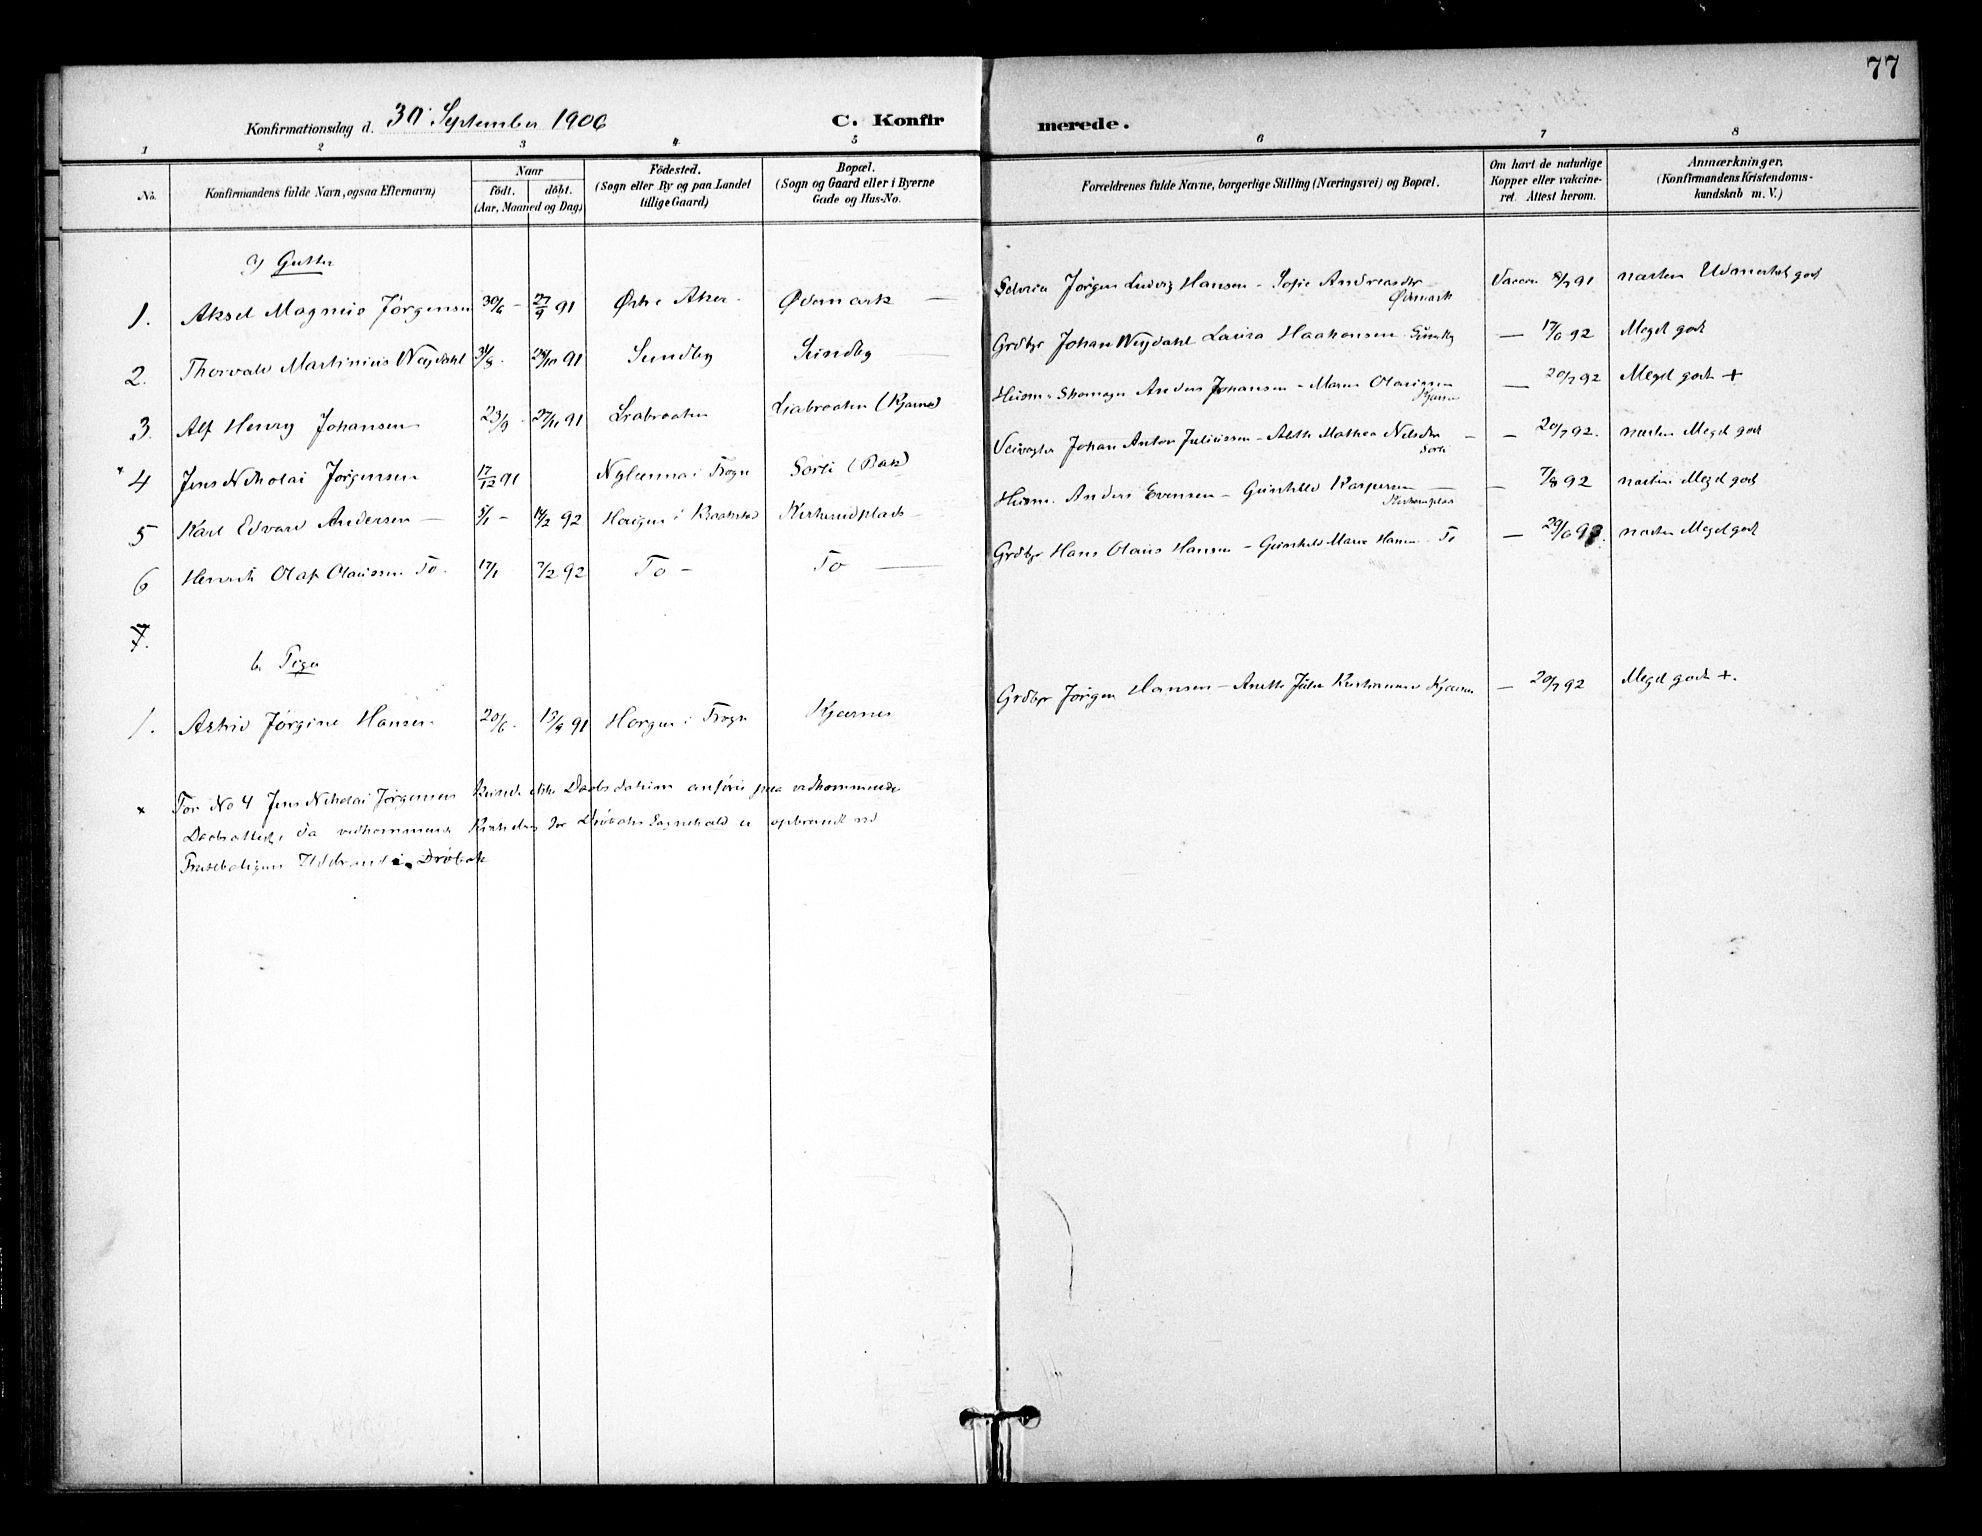 77
Konfirmationsdag d. 30 September 1906 C. Konfirmerede.
1 2 3 4 5 6 7 8
No. Konfirmandens fulde Navn, ogsaa Efternavn) Naar födt. döbt. (Aar, Maaned og Dag) Födested. (Sogn eller By og paa Landet tillige Gaard) Bopæl. (Sogn og Gaard eller i Byerne Gade og Hus-No. Forældrenes fulde Navne, borgerlige Stilling (Næringsvei) og Bopæl. Om havt de naturlige Kopper eller vakcineret. Attest herom. Anmærkninger, (Konfirmandens Kristendomskundskab m. V.)
a) Gutter
1. Aksel Magnus Jörgensen 30/6 - 27/9 91 Østre Aker - Ødemark — Jörgen Ludvig Hansen - Sofie Andreasdtr Ødemark Vaccin 8/7 91 næsten Udmerket godt
2. Thorvald Martinius Weydahl 31/8 - 91 Sundby Sundby — Grdbgr Johan Weydahl Laura Haakensen Sundby — 17/6 92 Meget godt
3. Alf Henry Johansen 23/9 - 27/11 91 Liabraaten Liabraaten (Kjærnes) Husm. Skomager Anders Johansen - Maren Olaussen Kjærnes — 20/7 92 Meget godt +
* 4 Jens Nikolai Jörgensen 17/12 91 i Frogn Sorli (Bak) Veivogter Johan Anton Juliussen - Mathea Nilsdtr Sorli — 20/7 92. næsten Meget godt
5 Karl Edvard Andersen — 5/1 - 14/2 92 i Kraakstad Kirkerudplads - Husm. Anders Evensen - Gunhild Kaspersen — — 7/8 92 næsten Meget godt
6 Henrik Olaf Olaussen To. 17/1 7/2 92 To - To — Grdbgr Hans Olaus Hansen - Gunhild Marie Hansen To — 29/6 93. næsten Meget godt
7.
b. Piger
1. Astrid Jörgine Hansen 20/6 - 13/9 91 Horgen i Frogn Kjærnes Grdbgr Jörgen Hansen - Anette Julie Kjærnes — 20/7 92 Meget godt +.
* For No 4 Jens Nikolai Jörgensen kunde ikke Daabsdatum anföres paa vedkommende
Daabsattest, da vedkommende Kirkebog for Dröbaks Sognekald er opbrændt ved
Præsteboligens Ildebrand i Dröbak